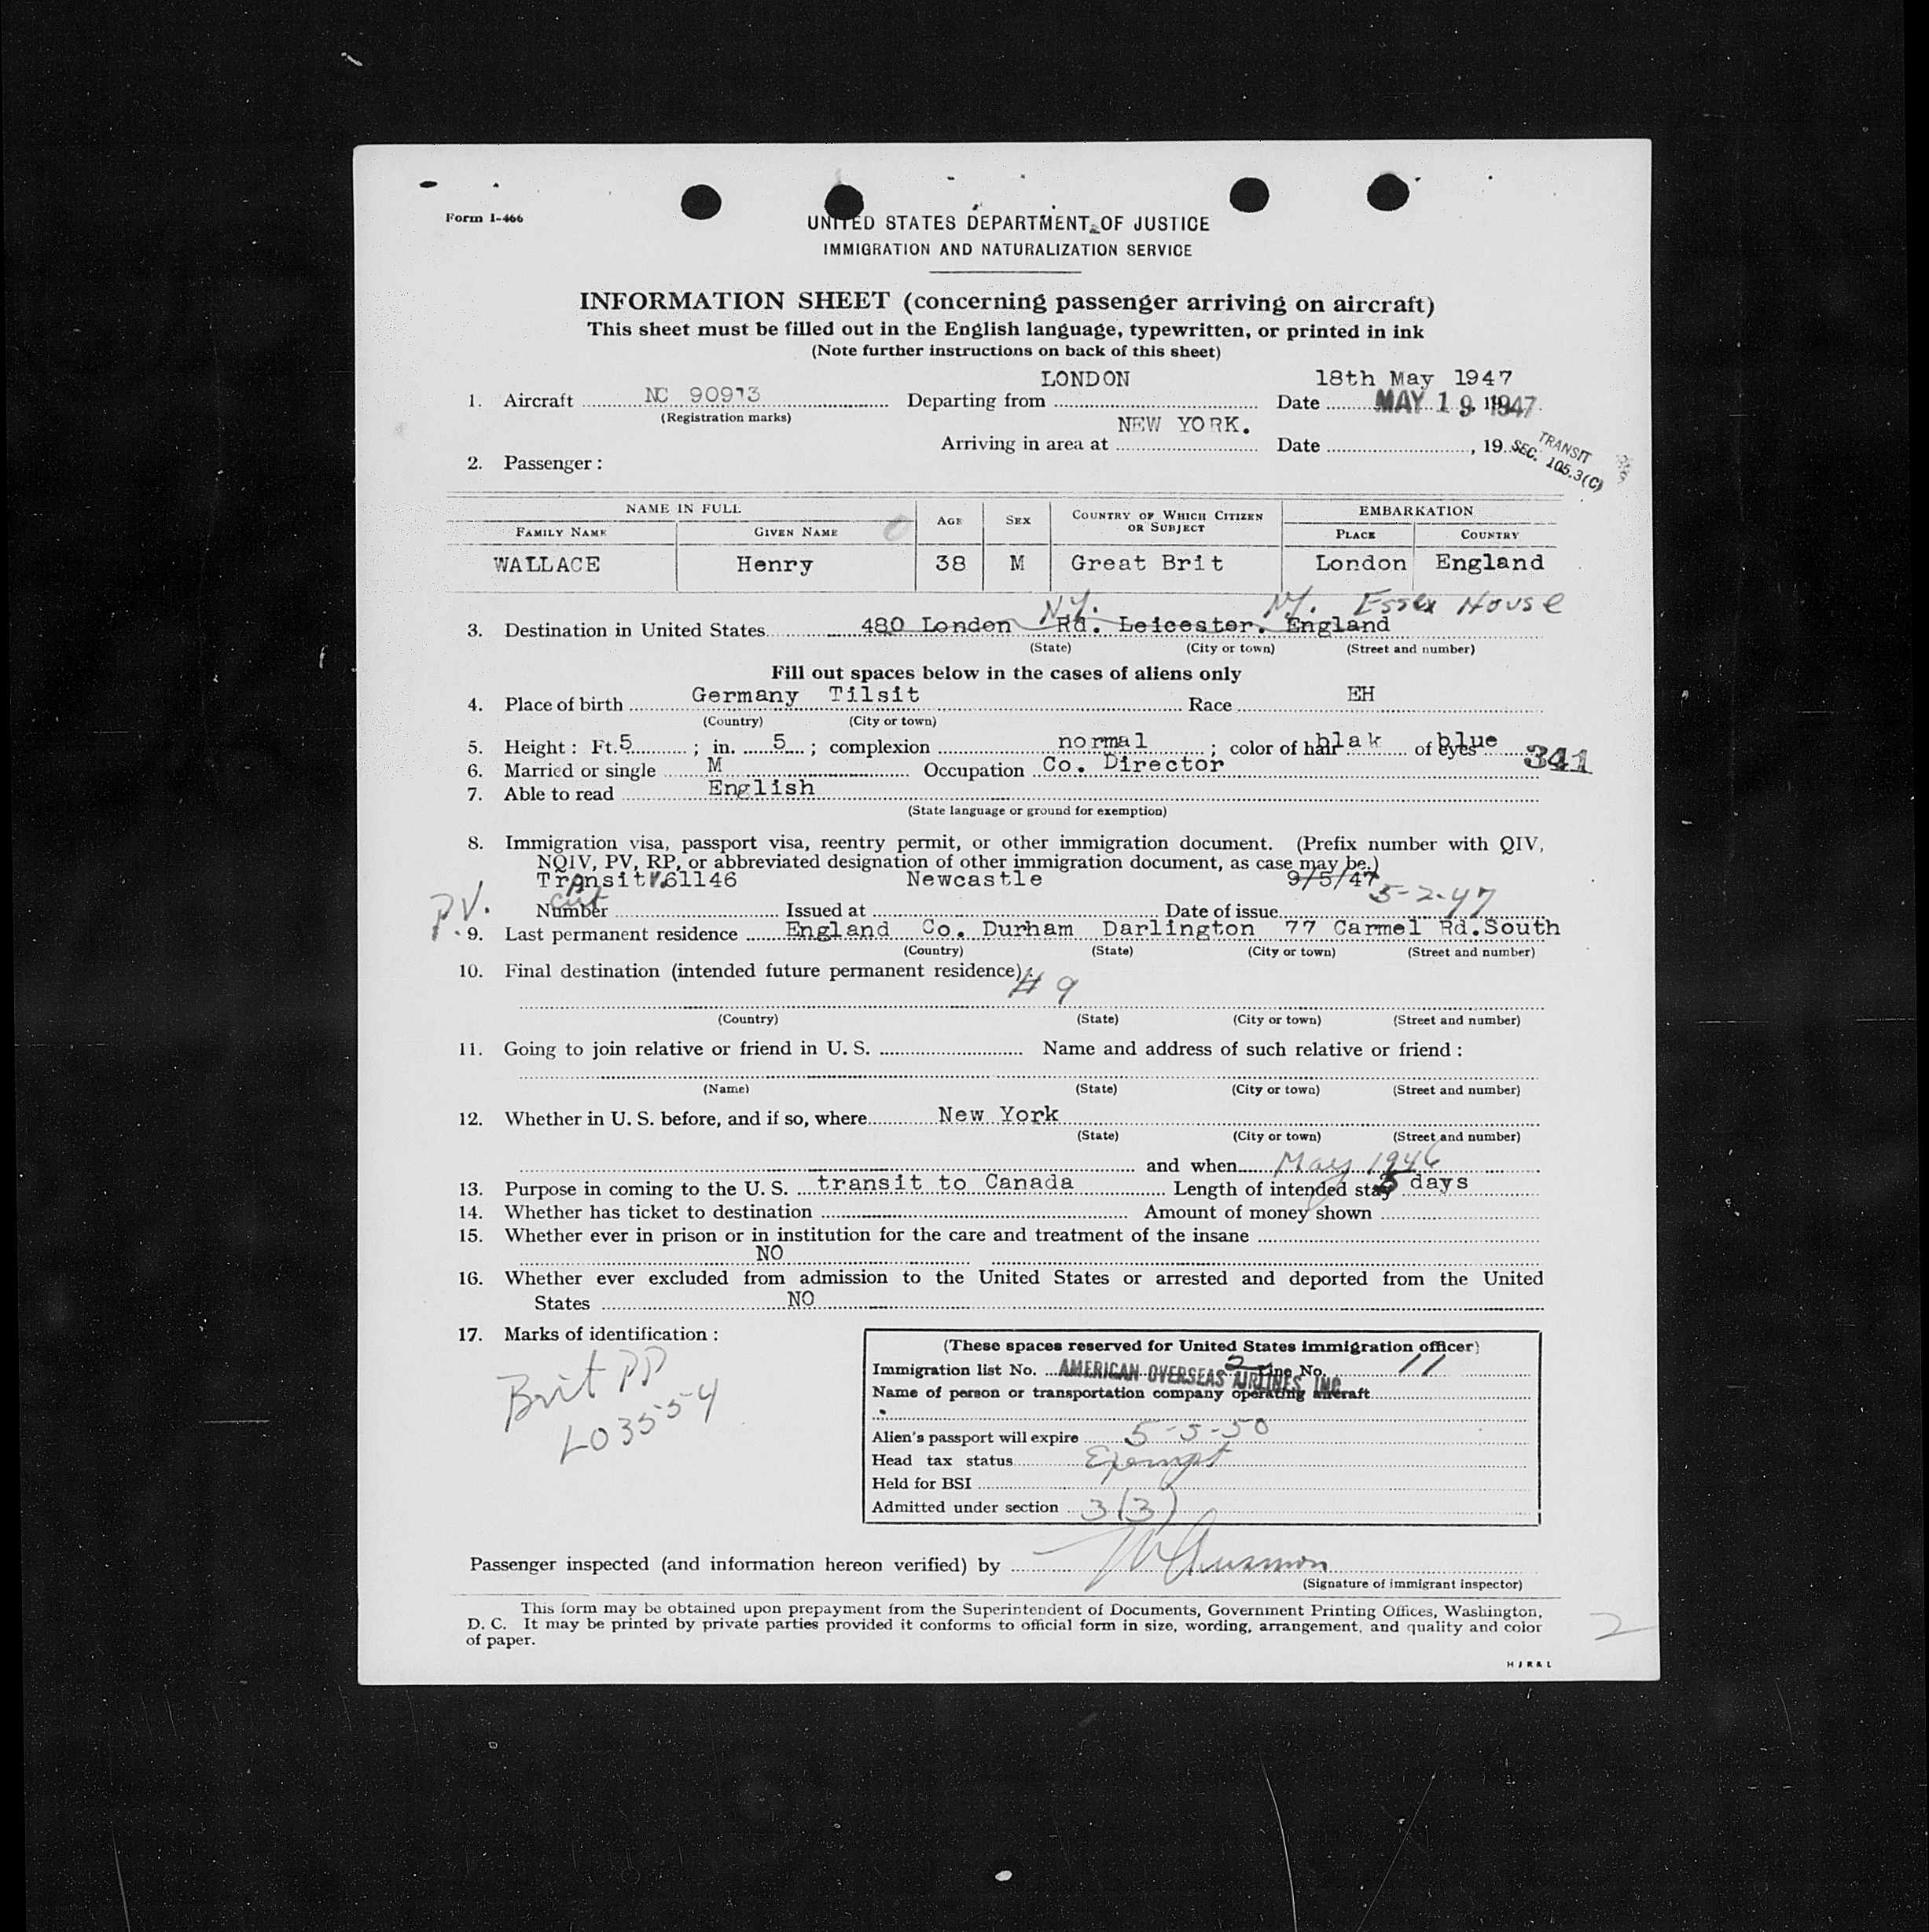 Form I-466
UNITED STATES DEPARTMENT OF JUSTICE
IMMIGRATION AND NATURALIZATION SERVICE
INFORMATION SHEET (concerning passenger arriving on aircraft)
This sheet must be filled out in the English language, typewritten, or printed in ink
(Note further instructions on back of this sheet)
LONDON 18th May 1947
1. Aircraft NC 90913 Departing from Date MAY 19 1947
(Registration marks)
NEW YORK.
Arriving in area at Date , 19
TRANSIT
SEC. 105.3(C)
2. Passenger :
NAME IN FULL AGE SEX COUNTRY OF WHICH CITIZEN OR SUBJECT EMBARKATION
FAMILY NAME GIVEN NAME PLACE COUNTRY
WALLACE Henry 38 M Great Brit London England
N.Y. N.Y. Essex House
3. Destination in United States 480 London Rd. Leicester. England
(State) (City or town) (Street and number)
Fill out spaces below in the cases of aliens only
4. Place of birth Germany Tilsit Race EH
(Country) (City or town)
5. Height : Ft. 5 ; in. 5 ; complexion normal ; color of hair blak of eyes blue
341
6. Married or single M Occupation Co. Director
7. Able to read English
(State language or ground for exemption)
8. Immigration visa, passport visa, reentry permit, or other immigration document. (Prefix number with QIV,
NQIV, PV, RP, or abbreviated designation of other immigration document, as case may be.)
Transit V.61146 Newcastle 9/5/47
P.V. 5-2-47
Number Issued at Date of issue
9. Last permanent residence England Co. Durham Darlington 77 Carmel Rd.South
(Country) (State) (City or town) (Street and number)
10. Final destination (intended future permanent residence) :
# 9
(Country) (State) (City or town) (Street and number)
11. Going to join relative or friend in U. S. Name and address of such relative or friend :
(Name) (State) (City or town) (Street and number)
12. Whether in U. S. before, and if so, where New York
(State) (City or town) (Street and number)
and when May 1946
13. Purpose in coming to the U. S. transit to Canada Length of intended stay 3 days
14. Whether has ticket to destination Amount of money shown
15. Whether ever in prison or in institution for the care and treatment of the insane
NO
16. Whether ever excluded from admission to the United States or arrested and deported from the United
States NO
17. Marks of identification :
Brit PP
L03554
(These spaces reserved for United States immigration officer)
Immigration list No. 2 Line No. 11
AMERICAN OVERSEAS AIRLINES, INC.
Name of person or transportation company operating aircraft
Alien's passport will expire 5-5-50
Head tax status Exempt
Held for BSI
Admitted under section 3(3)
Passenger inspected (and information hereon verified) by
(Signature of immigrant inspector)
This form may be obtained upon prepayment from the Superintendent of Documents, Government Printing Offices, Washington,
D. C. It may be printed by private parties provided it conforms to official form in size, wording, arrangement, and quality and color
of paper.
2
H J R & L